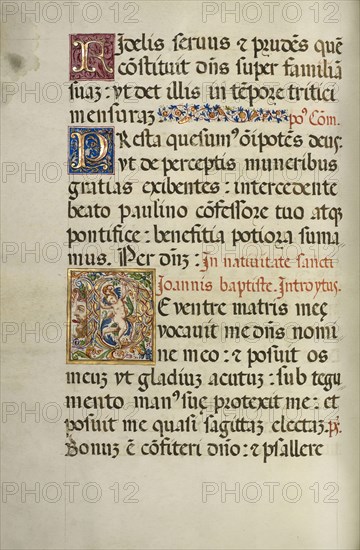 Fidelis seruus & prudēs quē
cōstituit dñs super familiā
suaʒ : ut det illis in tēpore tritici
mensuraʒ po' Cōm.
Presta quesum' oīpotēs deus,
ut de perceptis muneribus
gratias exibentes : intercedente
beato paulino cōfessore tuo atqʒ
pontifice : benefitia potiora suma
mus. Per dñʒ : In natiuitate sancti
Joannis baptiste. Introytus.
De ventre matris meę
vocauit me dñs nomi
ne meo : & posuit os
meuʒ ut gladiuʒ acutuʒ : sub tegu
mento man' suę protexit me : et
posuit me quasi sagittaʒ electaʒ. ps.
Bonuʒ ē cōfiteri dño : & psallere
PHOTO12